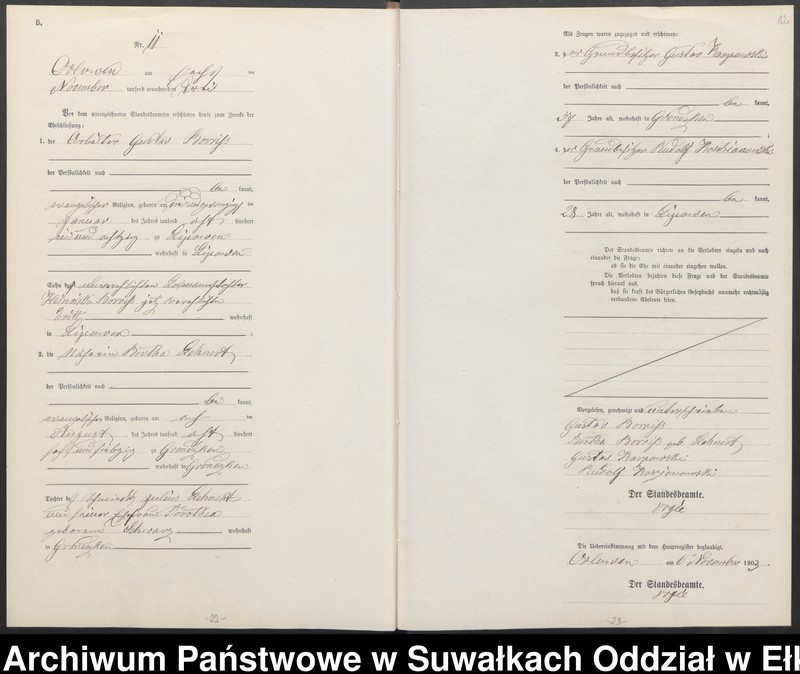 B.
Nr. 11
Orlowen am sechs ten
November tausend neunhundert drei
Vor dem unterzeichneten Standesbeamten erschienen heute zum Zwecke der
Eheschließung:
1. der Arbeiter Gustav Borriß
der Persönlichkeit nach
be kannt,
evangelischer Religion, geboren am ten
Januar des Jahres tausend acht hundert
ein und achtzig zu Lipowen
wohnhaft in Lipowen
Sohn der unverehelichten
Borriß jetz verehelichte
wohnhaft
in Lipowen ;
2. die Näherin Bertha Lehnert
der Persönlichkeit nach
be kannt,
evangelischer Religion, geboren am ten
August des Jahres tausend acht hundert
und siebzig zu Grondzken
wohnhaft in Grondzken
Tochter des Julius Lehnert
und seiner Ehefrau Dorothea
geborenen Schwarz wohnhaft
in Grondzken
-22-
Als Zeugen waren zugezogen und erschienen:
3. der Grundbesitzer Gustav Karpowski
der Persönlichkeit nach
be kannt,
Jahre alt, wohnhaft in Grondzken ;
4. der Grundbesitzer Rudolf
der Persönlichkeit nach
be kannt,
28 Jahre alt, wohnhaft in Lipowen
Der Standesbeamte richtete an die Verlobten einzeln und nach
einander die Frage:
ob sie die Ehe mit einander eingehen wollen.
Die Verlobten bejahten diese Frage und der Standesbeamte
sprach hierauf aus,
daß sie kraft des Bürgerlichen Gesetzbuchs nunmehr rechtmäßig
verbundene Eheleute seien.
Vorgelesen, genehmigt und unterschrieben
Gustav Borriß
Bertha Borriß geb. Lehnert
Gustav Karpowski
Rudolf
Der Standesbeamte.
Vogée
Die Uebereinstimmung mit dem Hauptregister beglaubigt.
Orlowen am 6 November 1903.
Der Standesbeamte.
Vogée
-23-
Archiwum Państwowe w Suwałkach Oddział w Ełk